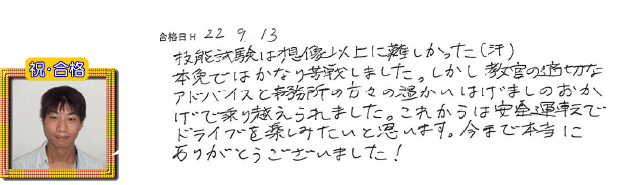 合格日 H 22 9 13
技能試験は想像以上に難しかった(汗)
本免ではかなり苦戦しました。しかし教官の適切な
アドバイスと事務所の方々の温かいはげましのおか
げで乗り越えられました。これからは安全運転で
ドライブを楽しみたいと思います。今まで本当に
ありがとうございました!
祝・合格